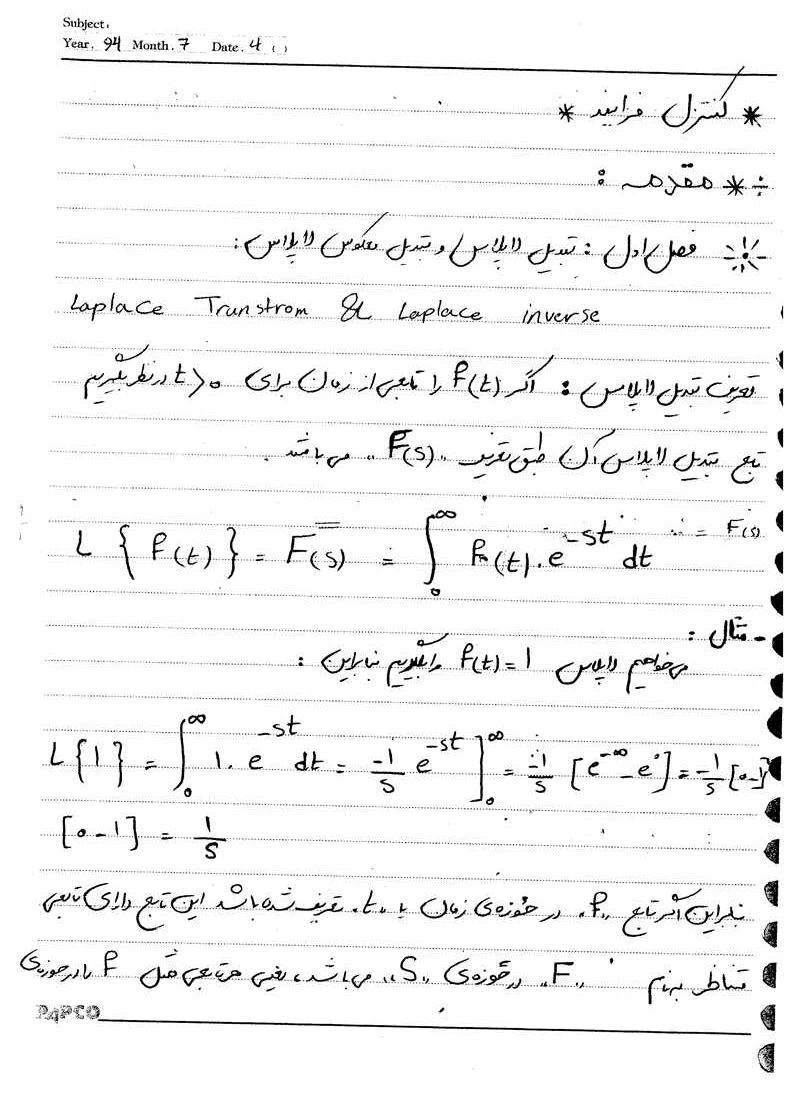 Subject:
Year. 94 Month. 7 Date. 4 ( )
* کنترل فرایند *
÷ * مقدمه :
فصل اول : تبدیل لاپلاس و تبدیل معکوس لاپلاس :
Laplace Transtrom & Laplace inverse
تعریف تبدیل لاپلاس : اگر f(t) را تابعی از زمان برای t > 0 در نظر بگیریم
تابع تبدیل لاپلاس آن طبق تعریف "F(s)" می باشد .
L { f(t) } = F(s) = ∫₀^∞ f(t) . e^-st dt = F(s)
- مثال :
می خواهیم لاپلاس f(t) = 1 را بگیریم بنابراین :
L{1} = ∫₀^∞ 1 . e^-st dt = -1/s e^-st ]₀^∞ = -1/s [e^-∞ - e^0] = -1/s [0-1]
[0-1] = 1/s
بنابراین اگر تابع "f" در حوزه ی زمان یا "t" تعریف شده باشد این تابع دارای تابعی
متناظر به نام "F" در حوزه ی "S" می باشد، یعنی هر تابعی مثل f را در حوزه ی
PAPCO